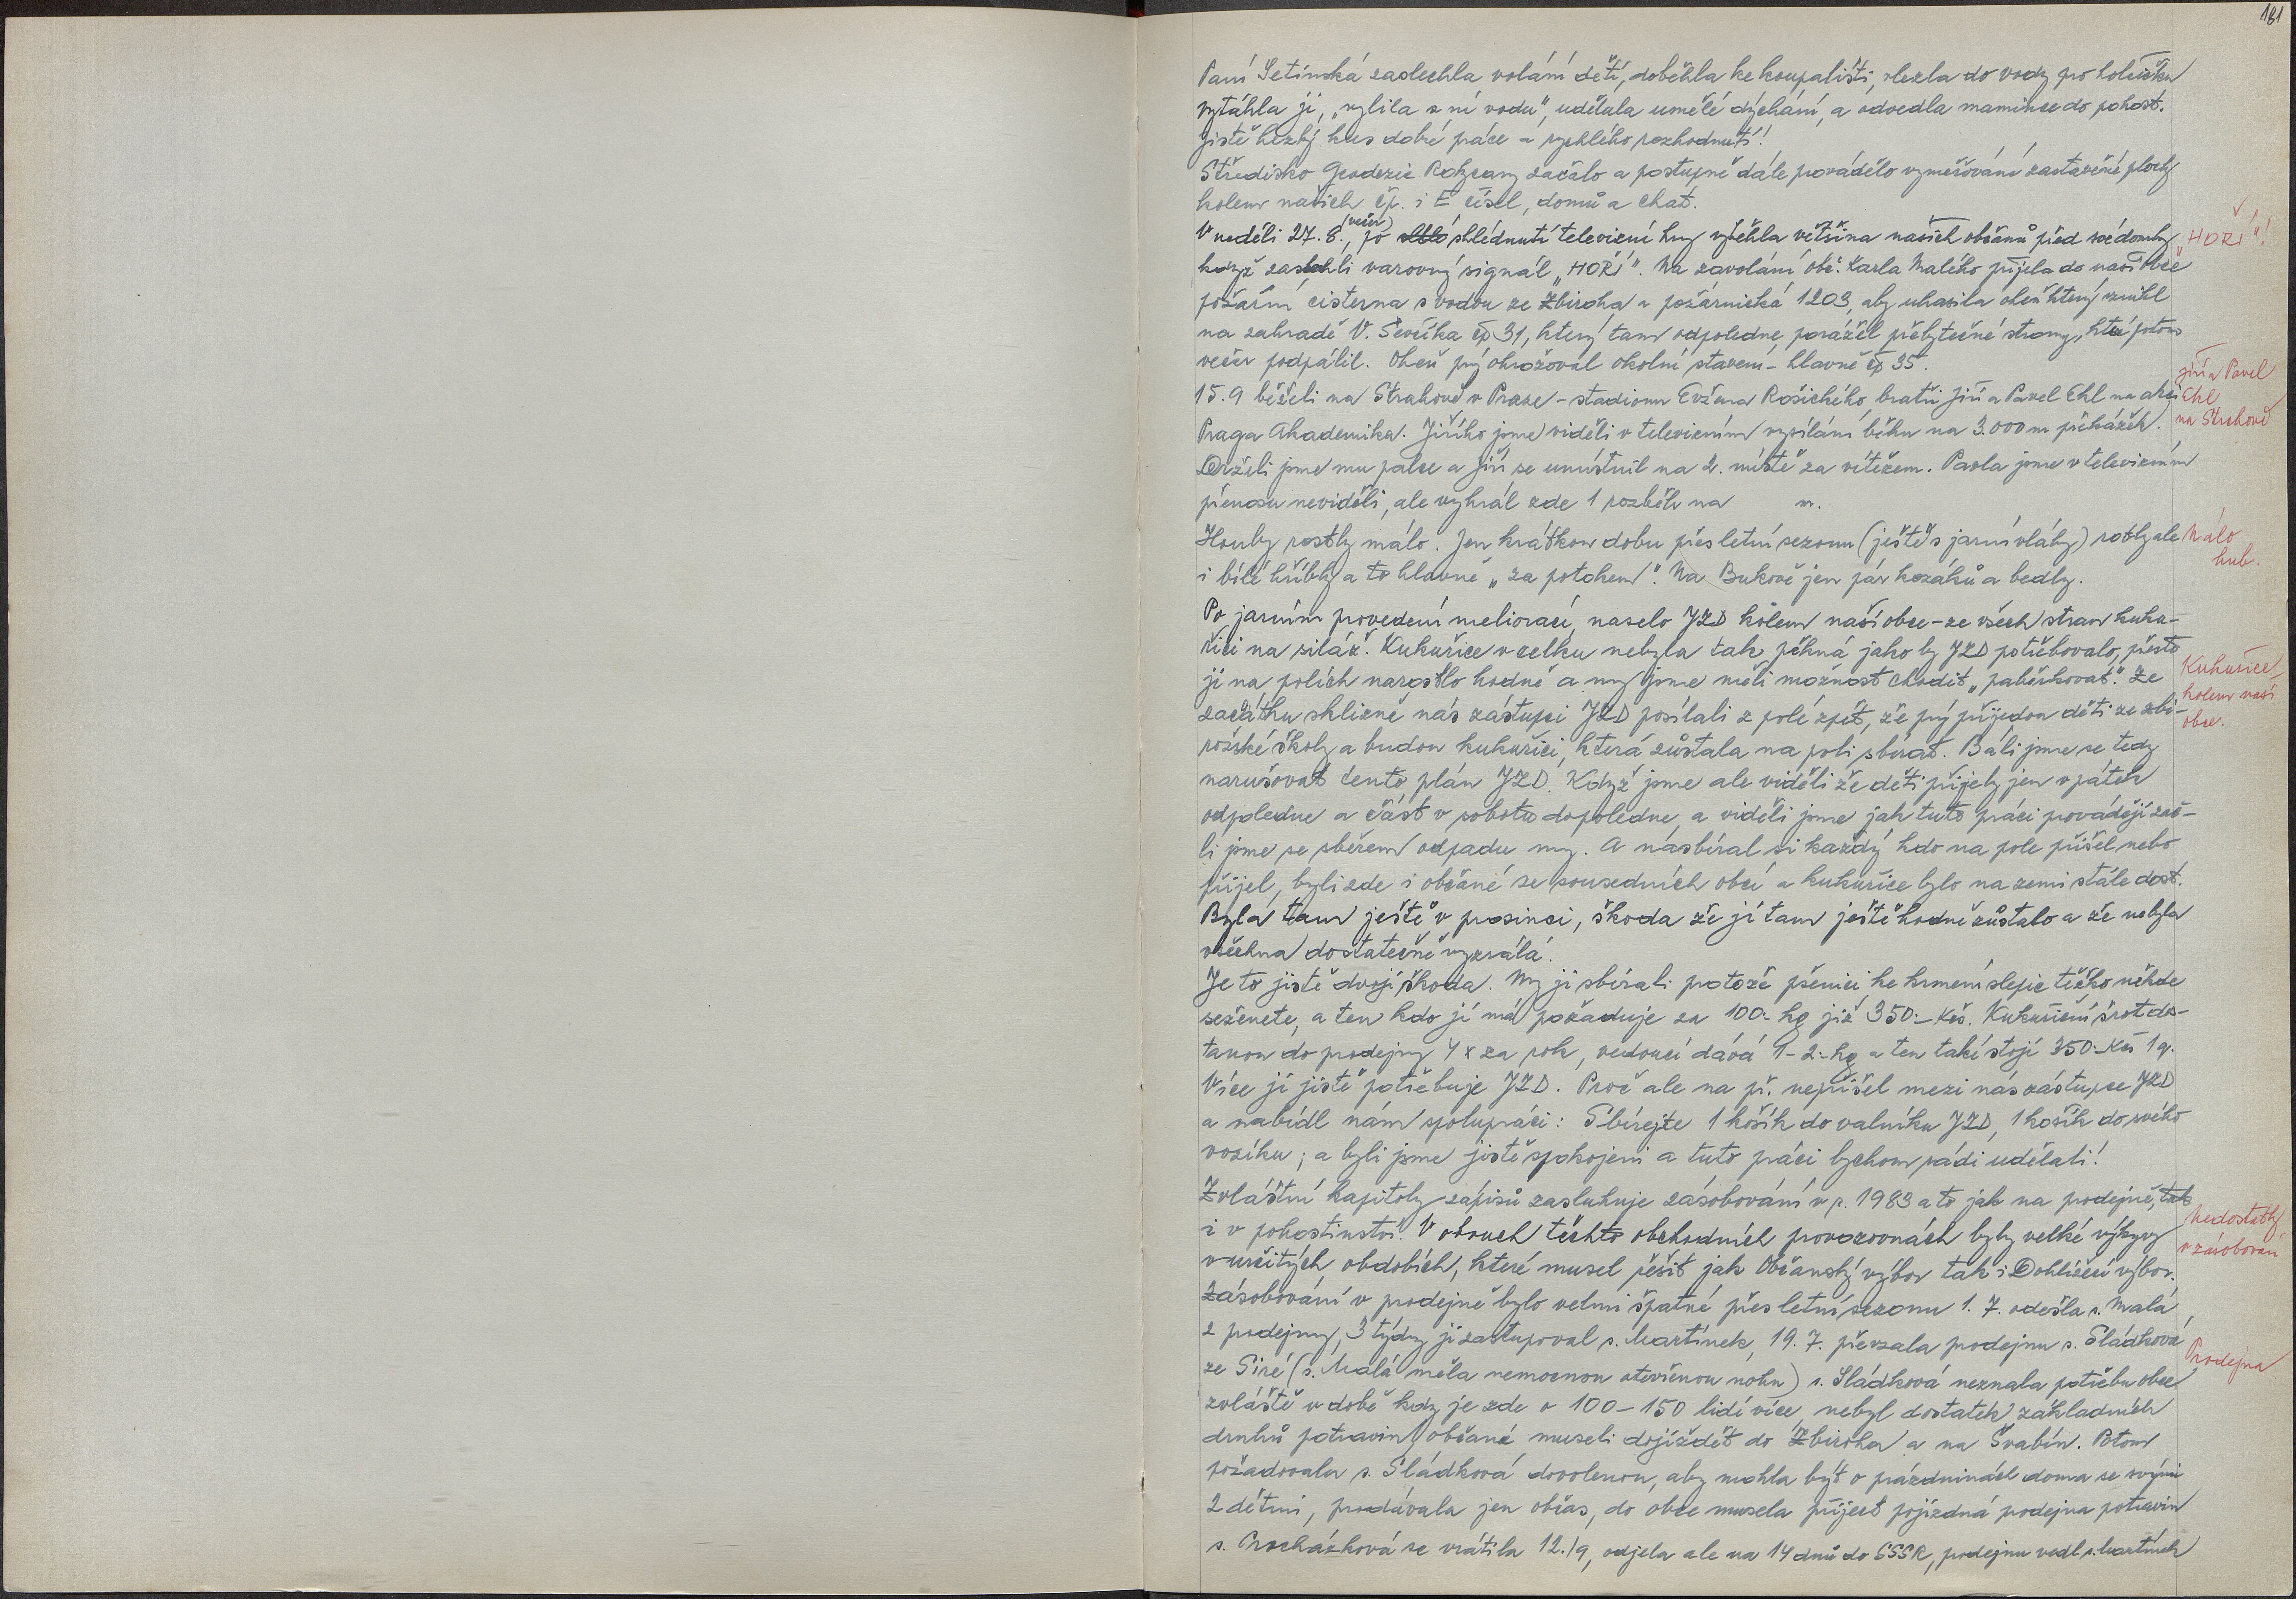 181
Paní Setínská zaslechla volání dětí, doběhla ke koupališti, vlezla do vody pro holčičku
vytáhla ji, „vylila z ní vodu", udělala umělé dýchání, a odvedla mamince do pohost.
jistě hezký kus dobré práce a rychlého rozhodnutí!
Středisko Geodezie Rokycany začalo a postupně dále provádělo vyměřování zastavěné plochy
kolem našich čp. i E čísel, domů a chat.
V neděli 27.8., (večer) po shlédnutí televizní hry vyběhla většina našich občanů před své domky
„HOŘÍ"!
když zaslechli varovný signál „HOŘÍ". Na zavolání obč. Karla Malého přijela do naší obce
požární cisterna s vodou ze Zbiroha a požárnická 1203, aby uhasila oheň který vznikl
na zahradě V. Ševčíka čp 31, který tam odpoledne porážel přebytečné stromy, které potom
večer podpálil. Oheň prý ohrožoval okolní stavení - hlavně čp 35.
Jiří a Pavel
Ehl
na Strahově
15.9 běželi na Strahově v Praze - stadionu Evžena Rošického, bratři Jiří a Pavel Ehl na akci
Praga Akademika. Jiřího jsme viděli v televizním vysílání běhu na 3.000 m překážek.
Drželi jsme mu palce a Jiří se umístnil na 2. místě za vítězem. Pavla jsme v televizním
přenosu neviděli, ale vyhrál zde 1 rozběh na m.
Houby rostly málo. Jen krátkou dobu přes letní sezonu (ještě s jarní vláhy) rostly ale
Málo
hub.
i bílé hříbky a to hlavně „za potokem". Na Bukově jen pár kozáků a bedly.
Po jarním provedení meliorací, naselo JZD kolem naší obce - ze všech stran kuku-
řici na siláž. Kukuřice v celku nebyla tak pěkná jako by JZD potřebovalo, přesto
Kukuřice
kolem naší
obce.
jí na polích narostlo hodně a my jsme měli možnost chodit „paběrkovat". Ze
začátku sklizně nás zástupci JZD posílali z polí zpět, že prý přijedou děti ze zbi-
rožské školy a budou kukuřici, která zůstala na poli sbírat. Báli jsme se tedy
narušovat tento plán JZD. Když jsme ale viděli že děti přijely jen v pátek
odpoledne a část v sobotu dopoledne, a viděli jsme jak tuto práci provádějí zač-
li jsme se sběrem odpadu my. A nasbíral si každý kdo na pole přišel nebo
přijel, byli zde i občané ze sousedních obcí a kukuřice bylo na zemi stále dost.
Byla tam ještě v prosinci, škoda že jí tam ještě hodně zůstalo a že nebyla
všechna dostatečně vyzrálá.
Je to jistě dvojí škoda. My ji sbírali protože pšenici ke krmení slepic těžko někde
seženete, a ten kdo jí má požaduje za 100.- kg již 350.- Kčs. Kukuřičný šrot dos-
tanou do prodejny 4 x za rok, vedoucí dává 1-2.- kg a ten také stojí 350.- Kčs 1 q.
Více jí jistě potřebuje JZD. Proč ale na př. nepřišel mezi nás zástupce JZD
a nabídl nám spolupráci: Sbírejte 1 košík do valníku JZD, 1 košík do svého
vozíku; a byli jsme jistě spokojeni a tuto práci bychom rádi udělali!
Zvláštní kapitoly zápisů zasluhuje zásobování v r. 1983 a to jak na prodejně, tak
Nedostatky
v zásobování
i v pohostinství. V obouch těchto obchodních provozovnách byly velké výkyvy
v určitých obdobích, které musel řešit jak Občanský výbor tak i Dohlížecí výbor.
Zásobování v prodejně bylo velmi špatné přes letní sezonu 1. 7. odešla s. Malá
Prodejna
z prodejny, 3 týdny ji zastupoval s. Martínek, 19. 7. převzala prodejnu s. Sládková
ze Siré (s. Malá měla nemocnou otevřenou nohu) s. Sládková neznala potřebu obce
zvláště v době kdy je zde o 100-150 lidí více, nebyl dostatek základních
druhů potravin, občané museli dojíždět do Zbiroha a na Švabín. Potom
požadovala s. Sládková dovolenou, aby mohla být o prázdninách doma se svými
2 dětmi, prodávala jen občas, do obce musela přijet pojízdná prodejna potravin
s. Procházková se vrátila 12./9, odjela ale na 14 dnů do SSSR, prodejnu vedl s. Martínek